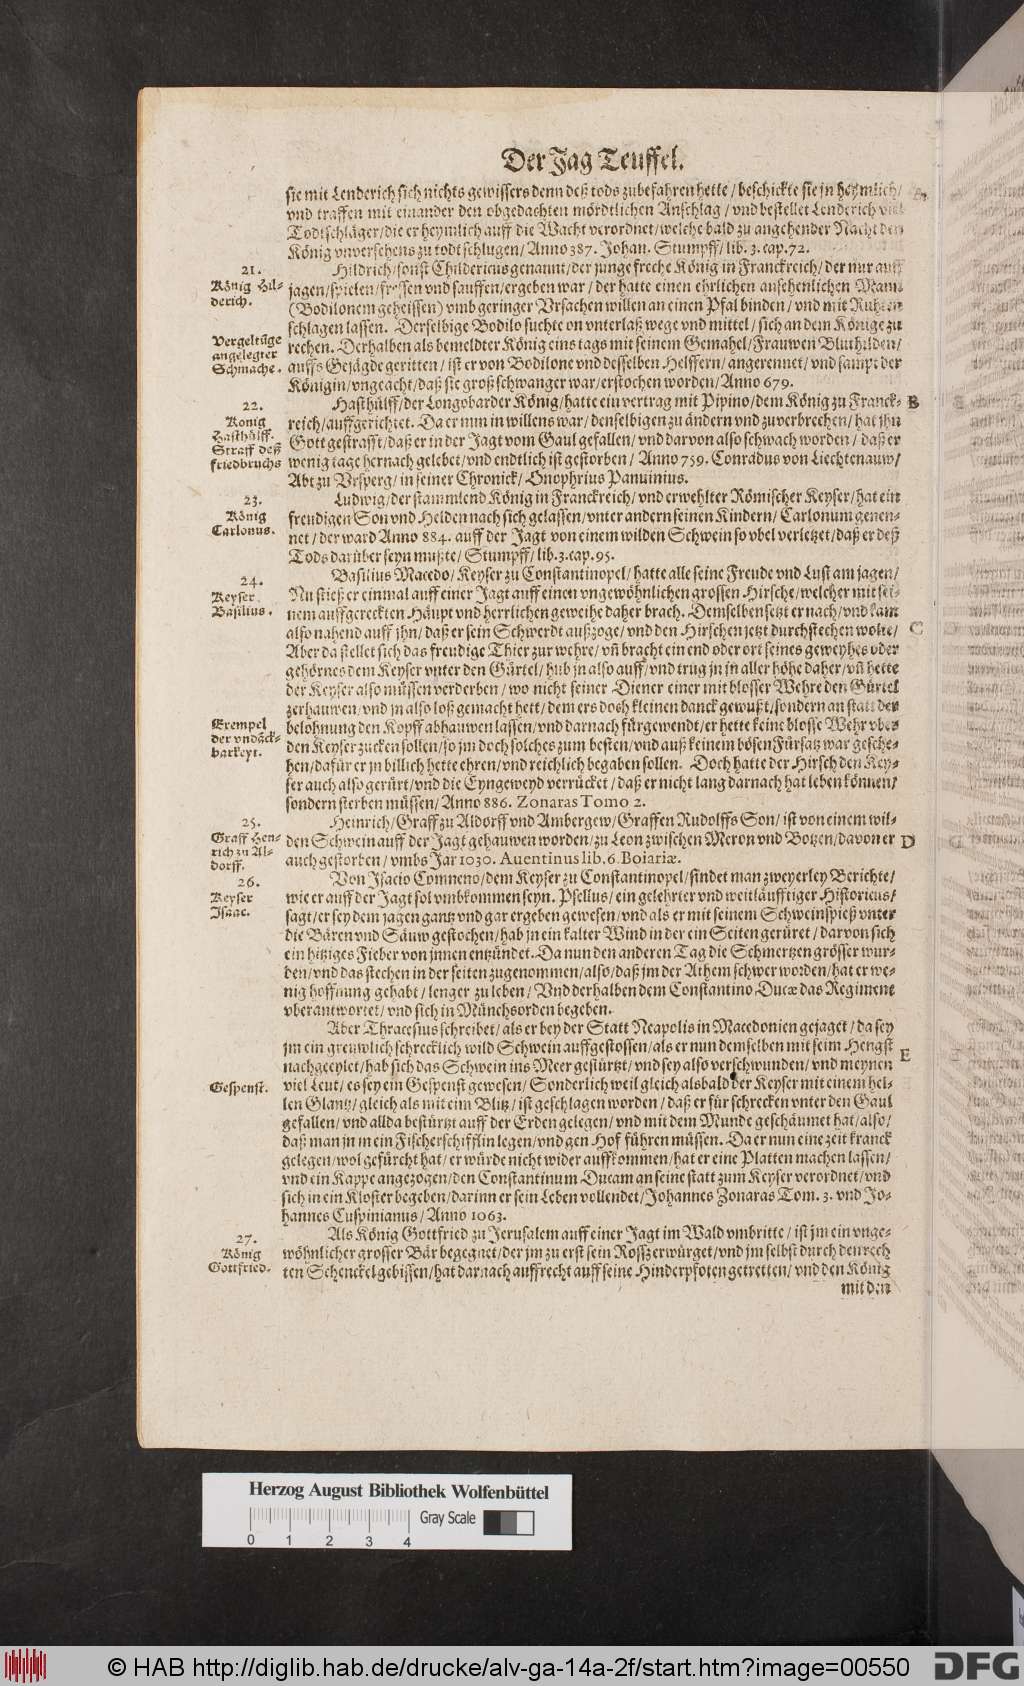 Der Jag Teuffel.
sie mit Lenderich sich nichts gewissers denn deß tods zubefahren hette / beschickte sie jn heymlich /
vnd traffen mit einander den obgedachten mördtlichen Anschlag / vnd bestellet Lenderich viel
Todtschläger / die er heymlich auff die Wacht verordnet / welche bald zu angehender Nacht den
König vnversehens zu todt schlugen / Anno 587. Johan. Stumpff / lib. 3. cap. 72.
21.
König Hil-
derich.
Hildrich / sonst Childericus genannt / der junge freche König in Franckreich / der nur auff
jagen / spielen / fressen vnd sauffen / ergeben war / der hatte einen ehrlichen ansehenlichen Mann
(Bodilonem geheissen) vmb geringer Vrsachen willen an einen Pfal binden / vnd mit Ruhten
schlagen lassen. Derselbige Bodilo suchte on vnterlaß wege vnd mittel / sich an dem Könige zu
Vergeltüge
angelegter
Schmache.
rechen. Derhalben als bemeldter König eins tags mit seinem Gemahel / Frauwen Bluthilden /
auffs Gejägde geritten / ist er von Bodilone vnd desselben Helffern / angerennet / vnd sampt der
Königin / vngeacht / daß sie groß schwanger war / erstochen worden / Anno 679.
22.
König
Hasthülff.
Straff deß
friedbruchs
Hasthülff / der Longobarder König / hatte ein vertrag mit Pipino / dem König zu Franck-
B
reich / auffgerichtet. Da er nun in willens war / denselbigen zu ändern vnd zuverbrechen / hat jhn
Gott gestrafft / daß er in der Jagt vom Gaul gefallen / vnd darvon also schwach worden / daß er
wenig tage hernach gelebet / vnd endtlich ist gestorben / Anno 759. Conradus von Liechtenauw /
Abt zu Vrsperg / in seiner Chronick / Onophrius Panuinius.
23.
König
Carlonus.
Ludwig / der stammlend König in Franckreich / vnd erwehlter Römischer Keyser / hat ein
freudigen Son vnd Helden nach sich gelassen / vnter andern seinen Kindern / Carlonum genen-
net / der ward Anno 884. auff der Jagt von einem wilden Schwein so vbel verletzet / daß er deß
Tods darüber seyn mußte / Stumpff / lib. 3. cap. 95.
24.
Keyser
Basilius.
Basilius Macedo / Keyser zu Constantinopel / hatte alle seine Freude vnd Lust am jagen /
Nu stieß er einmal auff einer Jagt auff einen vngewöhnlichen grossen Hirsche / welcher mit sei-
nem auffgereckten Häupt vnd herrlichen geweihe daher brach. Demselben setzt er nach / vnd kam
also nahend auff jhn / daß er sein Schwerdt außzoge / vnd den Hirschen jetzt durchstechen wolte /
C
Aber da stellet sich das freudige Thier zur wehre / vñ bracht ein end oder ort seines geweyhes oder
gehörnes dem Keyser vnter den Gürtel / hub jn also auff / vnd trug jn in aller höhe daher / vñ hette
der Keyser also müssen verderben / wo nicht seiner Diener einer mit blosser Wehre den Gürtel
zerhauwen / vnd jn also loß gemacht hett / dem ers doch kleinen danck gewußt / sondern an statt der
Exempel
der vndäck-
barkeyt.
belohnung den Kopff abhauwen lassen / vnd darnach fürgewendt / er hette keine blosse Wehr vber
den Keyser zucken sollen / so jm doch solches zum besten / vnd auß keinem bösen Fürsatz war gesche-
hen / dafür er jn billich hette ehren / vnd reichlich begaben sollen. Doch hatte der Hirsch den Key-
ser auch also gerürt / vnd die Eyngeweyd verrücket / daß er nicht lang darnach hat leben können /
sondern sterben müssen / Anno 886. Zonaras Tomo 2.
25.
Graff Hen-
rich zu Al-
dorff.
Heinrich / Graff zu Aldorff vnd Ambergew / Graffen Rudolffs Son / ist von einem wil-
den Schwein auff der Jagt gehauwen worden / zu Leon zwischen Meron vnd Botzen / davon er
D
auch gestorben / vmbs Jar 1030. Auentinus lib. 6. Boiariæ.
26.
Keyser
Isaac.
Von Isacio Comneno / dem Keyser zu Constantinopel / findet man zweyerley Berichte /
wie er auff der Jagt sol vmbkommen seyn. Psellus / ein gelehrter vnd weitläufftiger Historicus /
sagt / er sey dem jagen gantz vnd gar ergeben gewesen / vnd als er mit seinem Schweinspieß vnter
die Bären vnd Säuw gestochen / hab jn ein kalter Wind in der ein Seiten gerüret / darvon sich
ein hitziges Fieber von jnnen entzündet. Da nun den anderen Tag die Schmertzen grösser wur-
den / vnd das stechen in der seiten zugenommen / also / daß jm der Athem schwer worden / hat er we-
nig hoffnung gehabt / lenger zu leben / Vnd derhalben dem Constantino Ducæ das Regiment
vberantwortet / vnd sich in Münchsorden begeben.
Aber Thracesius schreibet / als er bey der Statt Neapolis in Macedonien gejaget / da sey
jm ein greuwlich schrecklich wild Schwein auffgestossen / als er nun demselben mit seim Hengst
E
nachgeeylet / hab sich das Schwein ins Meer gestürtzt / vnd sey also verschwunden / vnd meynen
Gespenst.
viel Leut / es sey ein Gespenst gewesen / Sonderlich weil gleich alsbald der Keyser mit einem hel-
len Glantz / gleich als mit eim Blitz / ist geschlagen worden / daß er für schrecken vnter den Gaul
gefallen / vnd allda bestürtzt auff der Erden gelegen / vnd mit dem Munde geschäumet hat / also /
daß man jn in ein Fischerschifflin legen / vnd gen Hof führen müssen. Da er nun eine zeit kranck
gelegen / wol gefürcht hat / er würde nicht wider auffkommen / hat er eine Platten machen lassen /
vnd ein Kappe angezogen / den Constantinum Ducam an seine statt zum Keyser verordnet / vnd
sich in ein Kloster begeben / darinn er sein Leben vollendet / Johannes Zonaras Tom. 3. vnd Jo-
hannes Cuspinianus / Anno 1063.
27.
König
Gottfried.
Als König Gottfried zu Jerusalem auff einer Jagt im Wald vmbritte / ist jm ein vnge-
wöhnlicher grosser Bär begegnet / der jm zu erst sein Rossz erwürget / vnd jm selbst durch den rech
ten Schenckel gebissen / hat darnach auffrecht auff seine Hinderpfoten getretten / vnd den König
mit den
Herzog August Bibliothek Wolfenbüttel
Gray Scale
0 1 2 3 4
© HAB http://diglib.hab.de/drucke/alv-ga-14a-2f/start.htm?image=00550
DFG